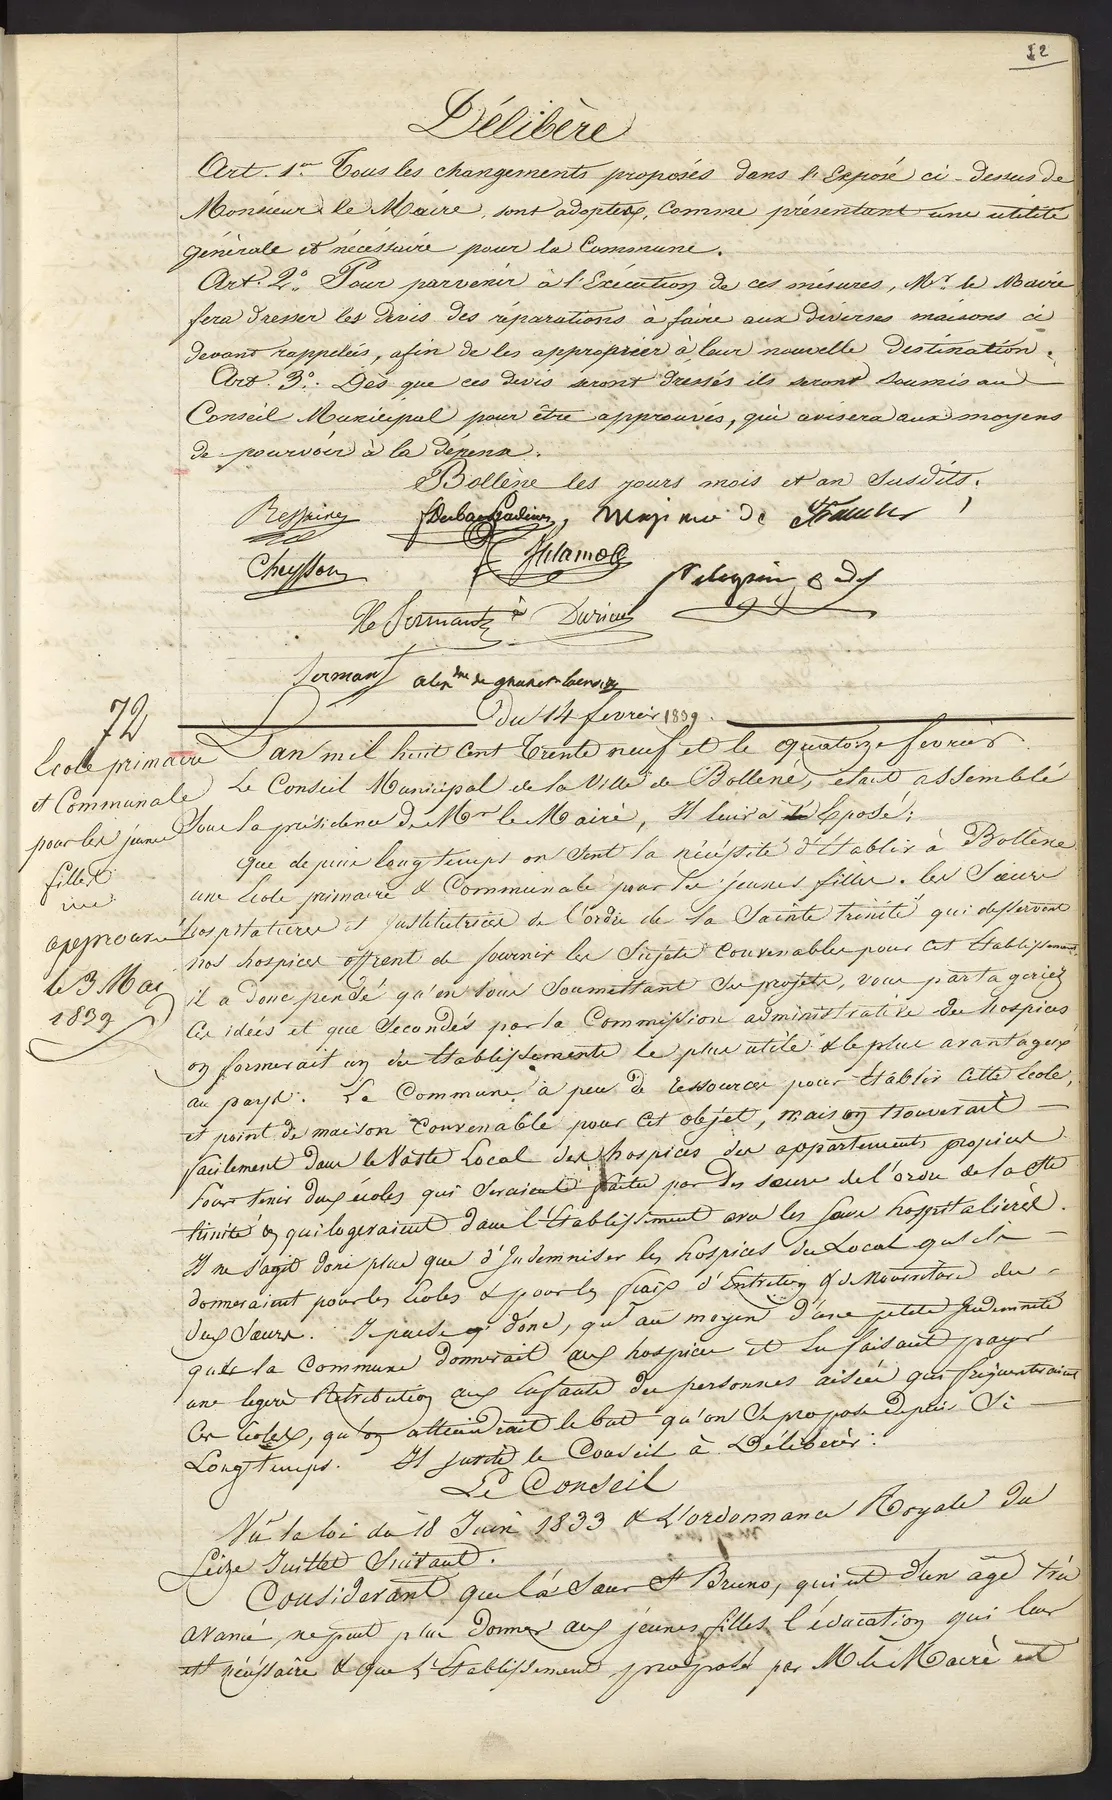 12
Délibère
Art. 1er Tous les changements proposés dans l'Exposé ci-dessus de
Monsieur le Maire, sont adoptés, comme présentant une utilité
générale et nécéssaire pour la Commune.
Art. 2° Pour parvenir à l'Exécution de ces mésures, Mr. le Maire
fera dresser les devis des réparations à faire aux diverses maisons ci
devant rappelées, afin de les approprier à leur nouvelle destination.
Art. 3°. Dès que ces devis seront dressés ils seront soumis au
Conseil Municipal pour être approuvés, qui avisera aux moyens
de pourvoir à la dépense.
Bollène les jours mois et an susdits.
Cheysson
Sermant
Du 14 fevrier 1839.
72
Ecole primaire
et Communale
pour les jeunes
filles
approuvé
le 3 Mai
1839
L'an mil huit Cent Trente neuf et le quatorze fevrier
Le Conseil Municipal de la Ville de Bollene, etait assemblé
sous la présidence de Mr le Maire, Il leur a Exposé;
que depuis longtemps on sent la nécéssité d'établir à Bollène
une Ecole primaire & Communale pour les jeunes filles. les Sœurs
hospitalieres et Institutrices de l'ordre de la Sainte trinité qui desservent
nos hospices offrent de fournir les Sujets Convenables pour cet Etablissement
il a donc pensé qu'en vous Soumettant ses projets, vous partageriez
Ces idées et que Secondés par la Commission administrative des hospices
on formerait un des Etablissements le plus utile & le plus avantageux
au pays. La Commune à peu de ressources pour Etablir Cette Ecole,
et point de maison Convenable pour cet objet, mais on trouverait
facilement dans le Vaste Local des hospices des appartements propices
Pour tenir deux écoles qui Seraient faites par des sœurs de l'ordre de la Ste
trinité & qui logeraient dans l'Etablissement avec les Sœurs hospitalières.
Il ne s'agit donc plus que d'Indemniser les hospices du Local qu'ils
donneraient pour les Ecoles & pour les frais d'Entretien & de Nourriture des
deux Sœurs. Il pense donc, qu'au moyen d'une petite Indemnité
que la Commune donnerait aux hospices et En faisant payer
une legere Rétribution aux Enfants des personnes aisées qui fréquenteraient
Ces Ecoles, qu'on attiendrait le but qu'on Se propose depuis Si
Longtemps. Il invite le Conseil à Délibérer.
Le Conseil
Vu la loi du 18 Juin 1833 & L'ordonnance Royale du
Seize Juillet Suivant.
Considerant que la Sœur St Bruno, qui est d'un âge très
avancé, ne peut plus donner aux jeunes filles l'éducation qui leur
est nécéssaire & que L'Etablissement proposé par Mr le Maire est